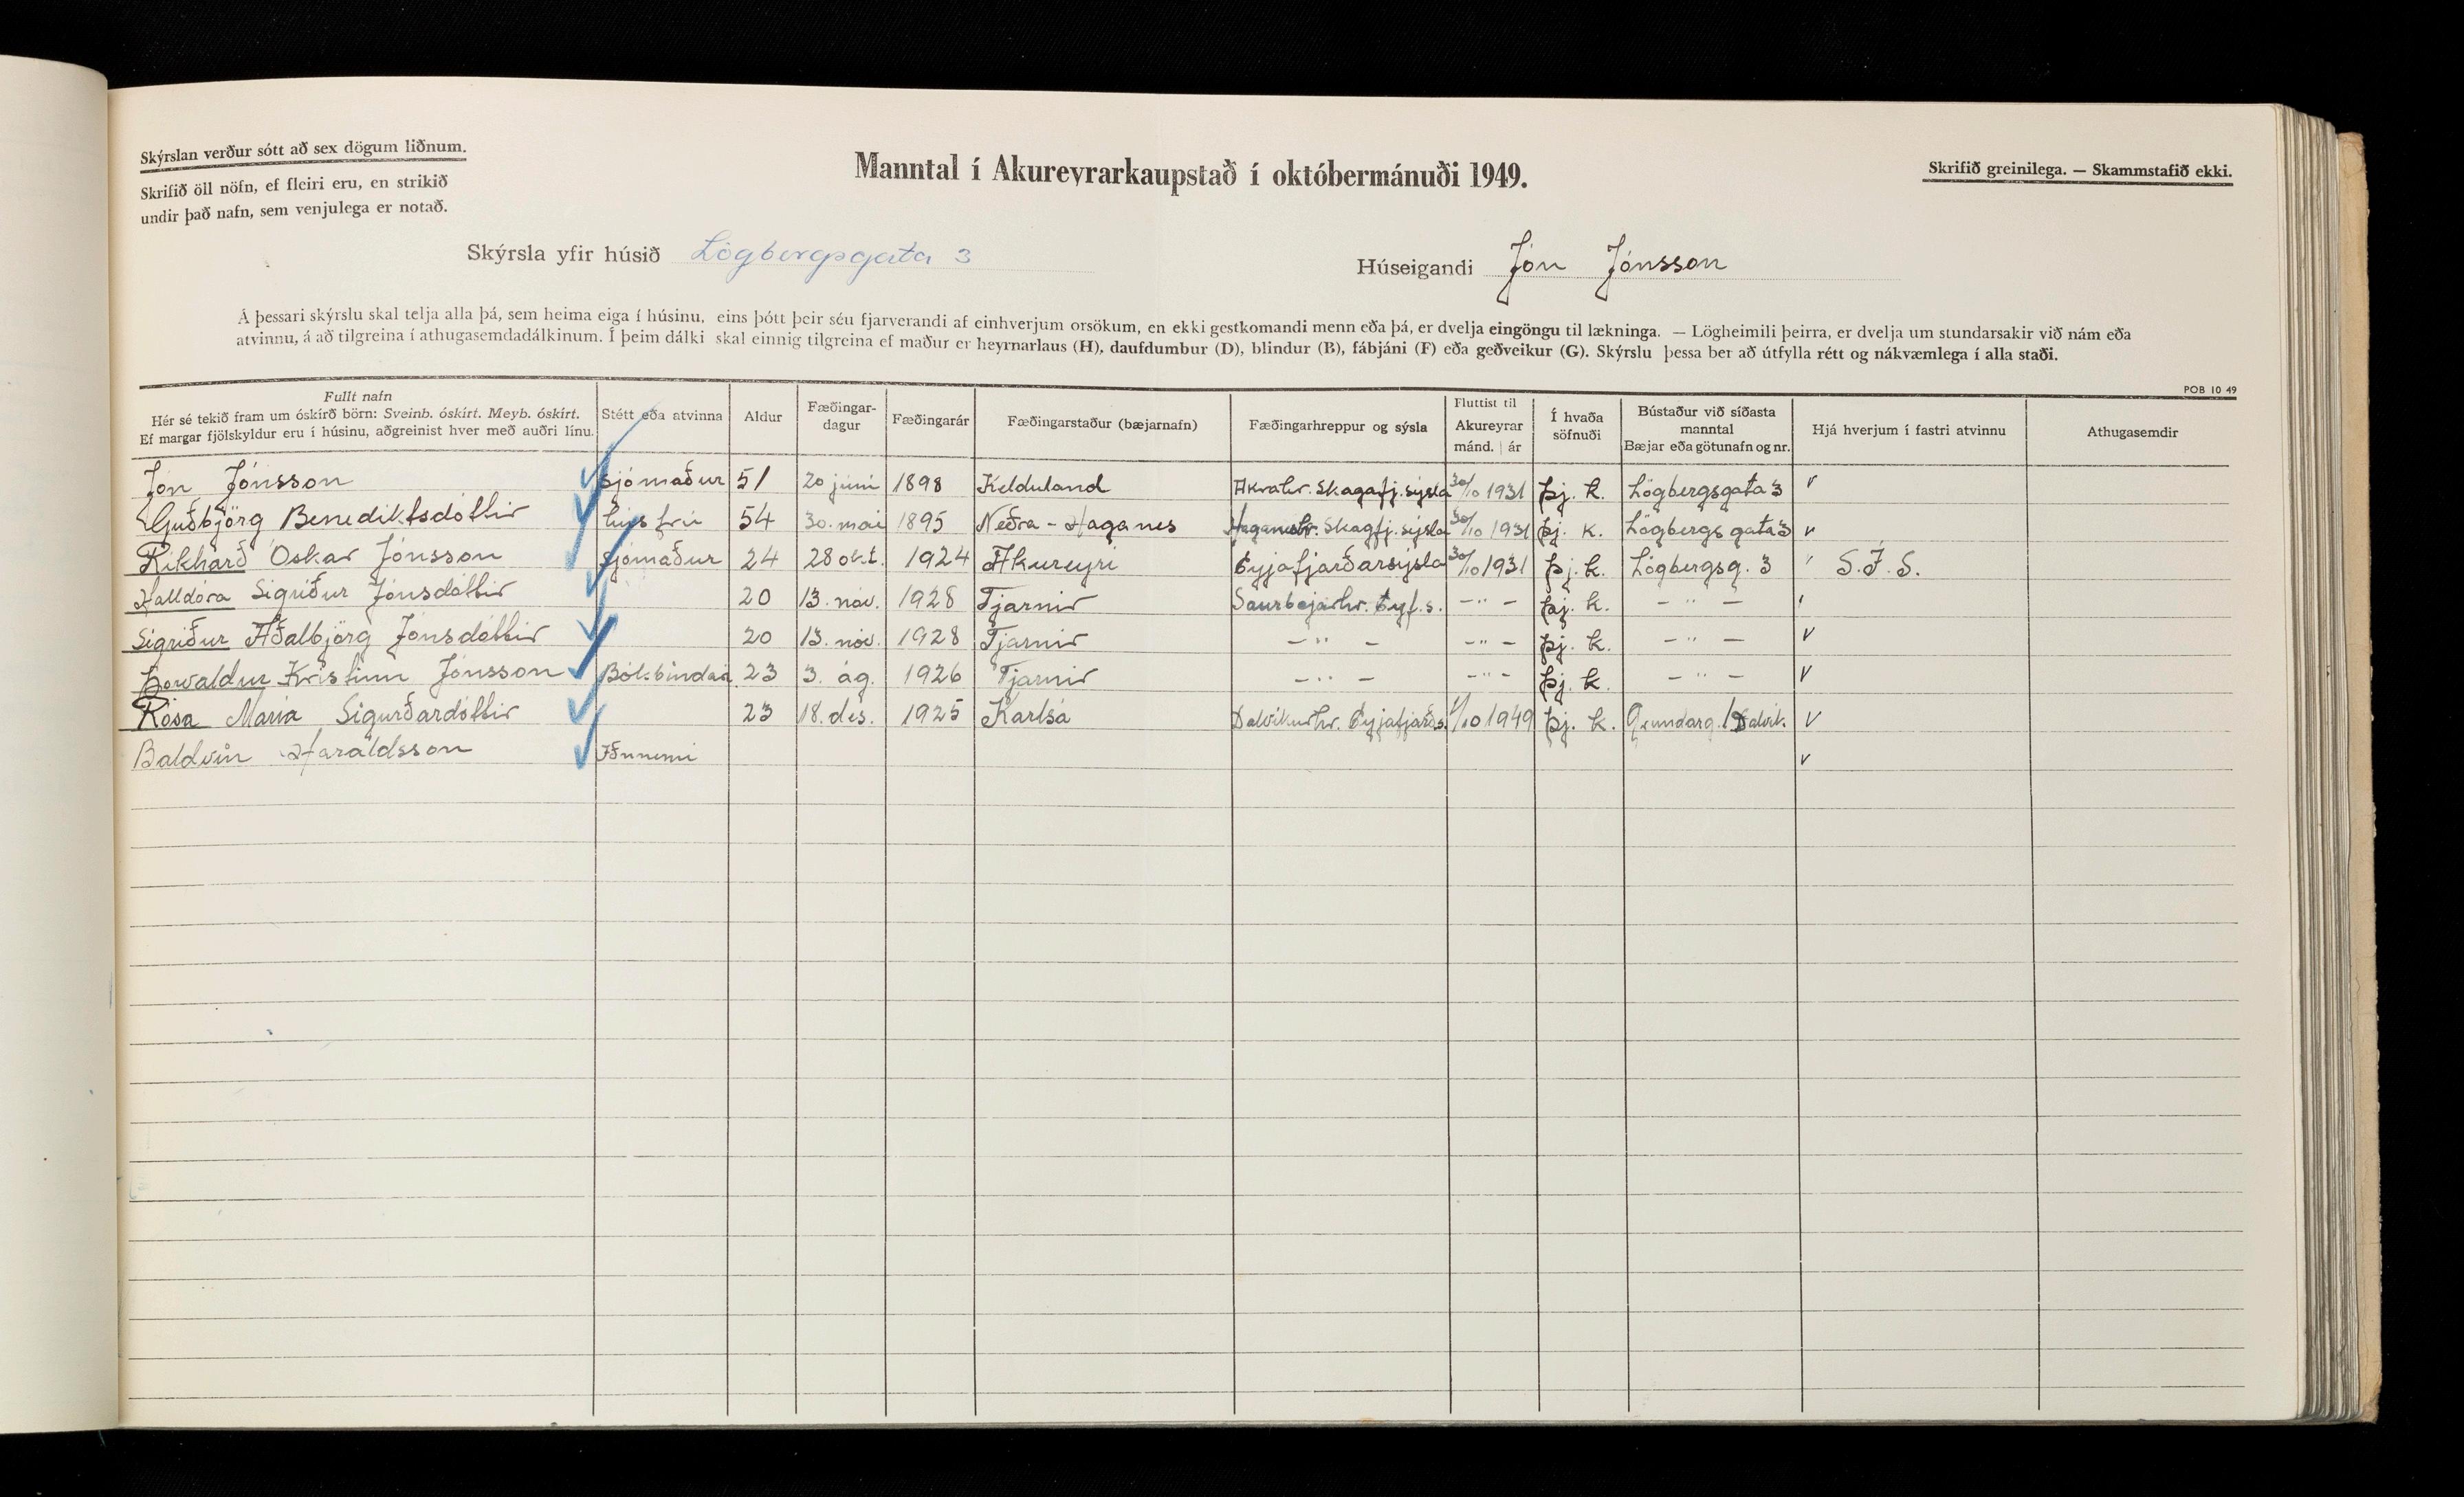 Skýrslan verður sótt að sex dögum liðnum.
Skrifið öll nöfn, ef fleiri eru, en strikið
undir það nafn, sem venjulega er notað.
Manntal í Akureyrarkaupstað í októbermánuði 1949.
Skrifið greinilega. — Skammstafið ekki.
Skýrsla yfir húsið Lögbergsgata 3
Húseigandi Jón Jónsson
Á þessari skýrslu skal telja alla þá, sem heima eiga í húsinu, eins þótt þeir séu fjarverandi af einhverjum orsökum, en ekki gestkomandi menn eða þá, er dvelja eingöngu til lækninga. — Lögheimili þeirra, er dvelja um stundarsakir við nám eða
atvinnu, á að tilgreina í athugasemdadálkinum. Í þeim dálki skal einnig tilgreina ef maður er heyrnarlaus (H), daufdumbur (D), blindur (B), fábjáni (F) eða geðveikur (G). Skýrslu þessa ber að útfylla rétt og nákvæmlega í alla staði.
POB 10 49
Fullt nafn
Hér sé tekið fram um óskírð börn: Sveinb. óskírt. Meyb. óskírt.
Ef margar fjölskyldur eru í húsinu, aðgreinist hver með auðri línu.
Stétt eða atvinna
Aldur
Fæðingar-
dagur
Fæðingarár
Fæðingarstaður (bæjarnafn)
Fæðingarhreppur og sýsla
Fluttist til
Akureyrar
mánd. | ár
Í hvaða
söfnuði
Bústaður við síðasta
manntal
Bæjar eða götunafn og nr.
Hjá hverjum í fastri atvinnu
Athugasemdir
Jón Jónsson Sjómaður 51 20 júní 1898 Kelduland Akrahr. Skagafj.sýsla 30/10 1931 Þj. k. Lögbergsgata 3
Guðbjörg Benediktsdóttir húsfrú 54 30. maí 1895 Neðra-Haganes Haganeshr. Skagfj.sýsla 30/10 1931 Þj. k. Lögbergsgata 3
Rikharð Óskar Jónsson Sjómaður 24 28 okt. 1924 Akureyri Eyjafjarðarsýsla 30/10 1931 Þj. k. Lögbergsg. 3 S.Í.S.
Halldóra Sigríður Jónsdóttir 20 13. nóv. 1928 Tjarnir Saurbæjarhr. Eyf.s. — " — Þj. k. — " —
Sigríður Aðalbjörg Jónsdóttir 20 13. nóv. 1928 Tjarnir — " — — " — Þj. k. — " —
Þorvaldur Kristinn Jónsson 23 3. ág. 1926 Tjarnir — " — — " — Þj. k. — " —
Rósa María Sigurðardóttir 23 18. des. 1925 Karlsá Dalvíkurhr. Eyjafjarðs. 1/10 1949 Þj. k. Grundarg. 1 Dalvík.
Baldvin Haraldsson Iðnnemi